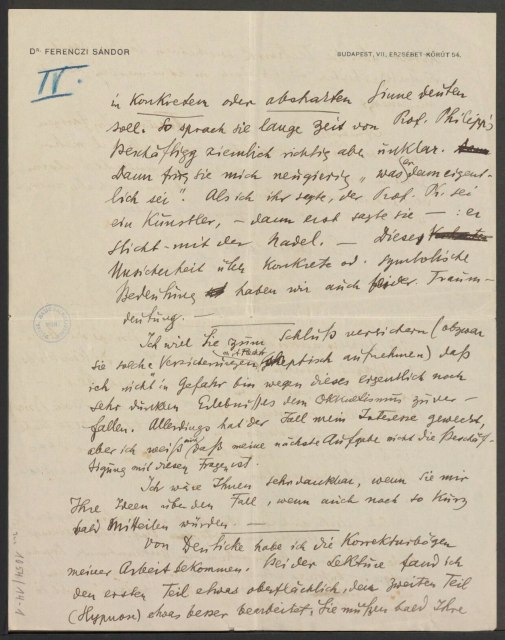 Dr. FERENCZI SÁNDOR
BUDAPEST, VII, ERZSÉBET-KÖRÚT 54.
IV.
in konkretem oder abstrakten Sinne deuten
soll. So sprach sie lange Zeit von Prof. Philipp's
Beschäftigg ziemlich richtig aber unklar.
Dann frug sie mich neugierig „was er denn eigent-
lich sei“. Als ich ihr sagte, der Prof. Ph. sei
ein Künstler, – dann erst sagte sie – : er
sticht – mit der Nadel. – Diese
Unsicherheit über konkrete od. symbolische
Bedeutung haben wir auch bei der Traum-
deutung. –
Ich will Sie zum Schluß versichern (obzwar
Sie solche Versicherungen mit Recht skeptisch aufnehmen) daß
ich nicht in Gefahr bin wegen dieses eigentlich noch
sehr dunklen Erlebnisses dem Okkultismus zu ver-
fallen. Allerdings hat der Fall mein Interesse geweckt,
aber ich weiß auch daß meine nächste Aufgabe nicht die Beschäf-
tigung mit diesen Fragen ist.
Ich wäre Ihnen sehr dankbar, wenn Sie mir
Ihre Ideen über den Fall, wenn auch noch so kurz
bald mitteilen würden. –
Von Deuticke habe ich die Korrekturbögen
meiner Arbeit bekommen. Bei der Lektüre fand ich
den ersten Teil etwas oberflächlich, den zweiten Teil
(Hypnose) etwas besser bearbeitet; Sie müßen bald Ihre
1054/14-1